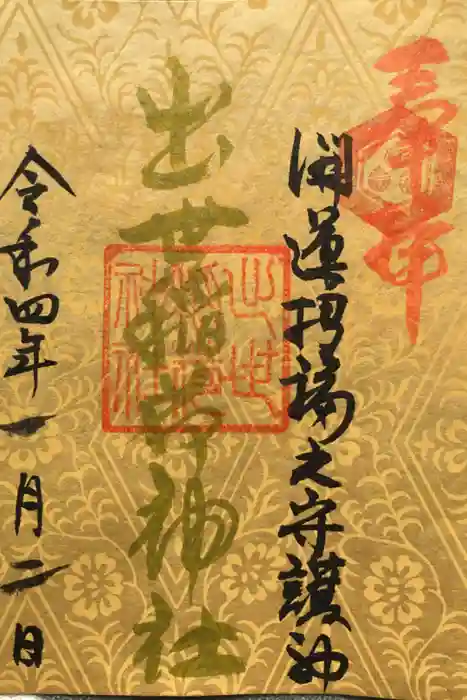 奉拝
開運招福之守護神
出世稲荷神社
令和四年一月二日